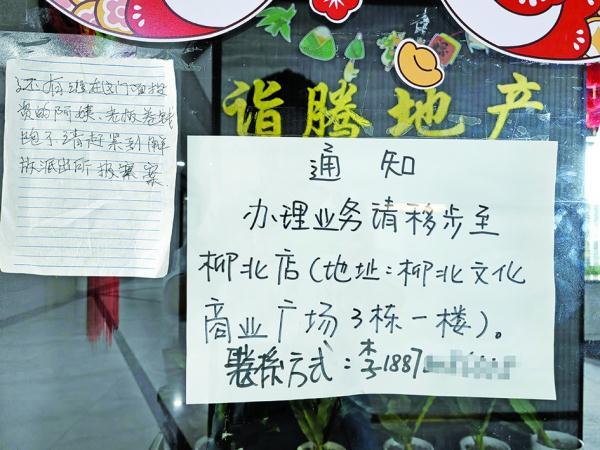 还有谁在这门面投
资的阿姨、老板卷钱
跑了请赶紧到解
放派出所报案
诣腾地产
通知
办理业务请移步至
柳北店(地址:柳北文化
商业广场3栋一楼)。
联系方式:李1887